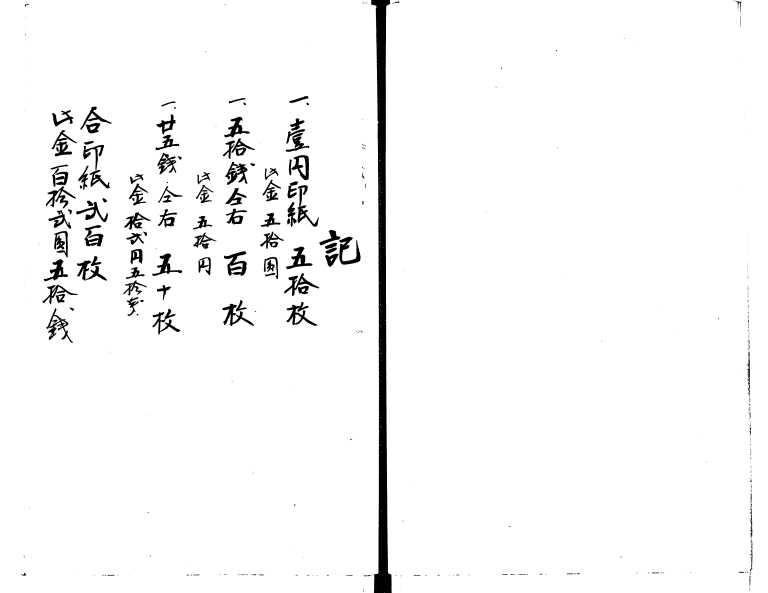 記
一、壹円印紙 五拾枚
此金五拾圓
一、五拾錢仝右 百枚
此金五拾円
一、廿五錢仝右 五十枚
此金拾弐円五拾銭
合印紙弐百枚
此金百拾弐圓五拾錢